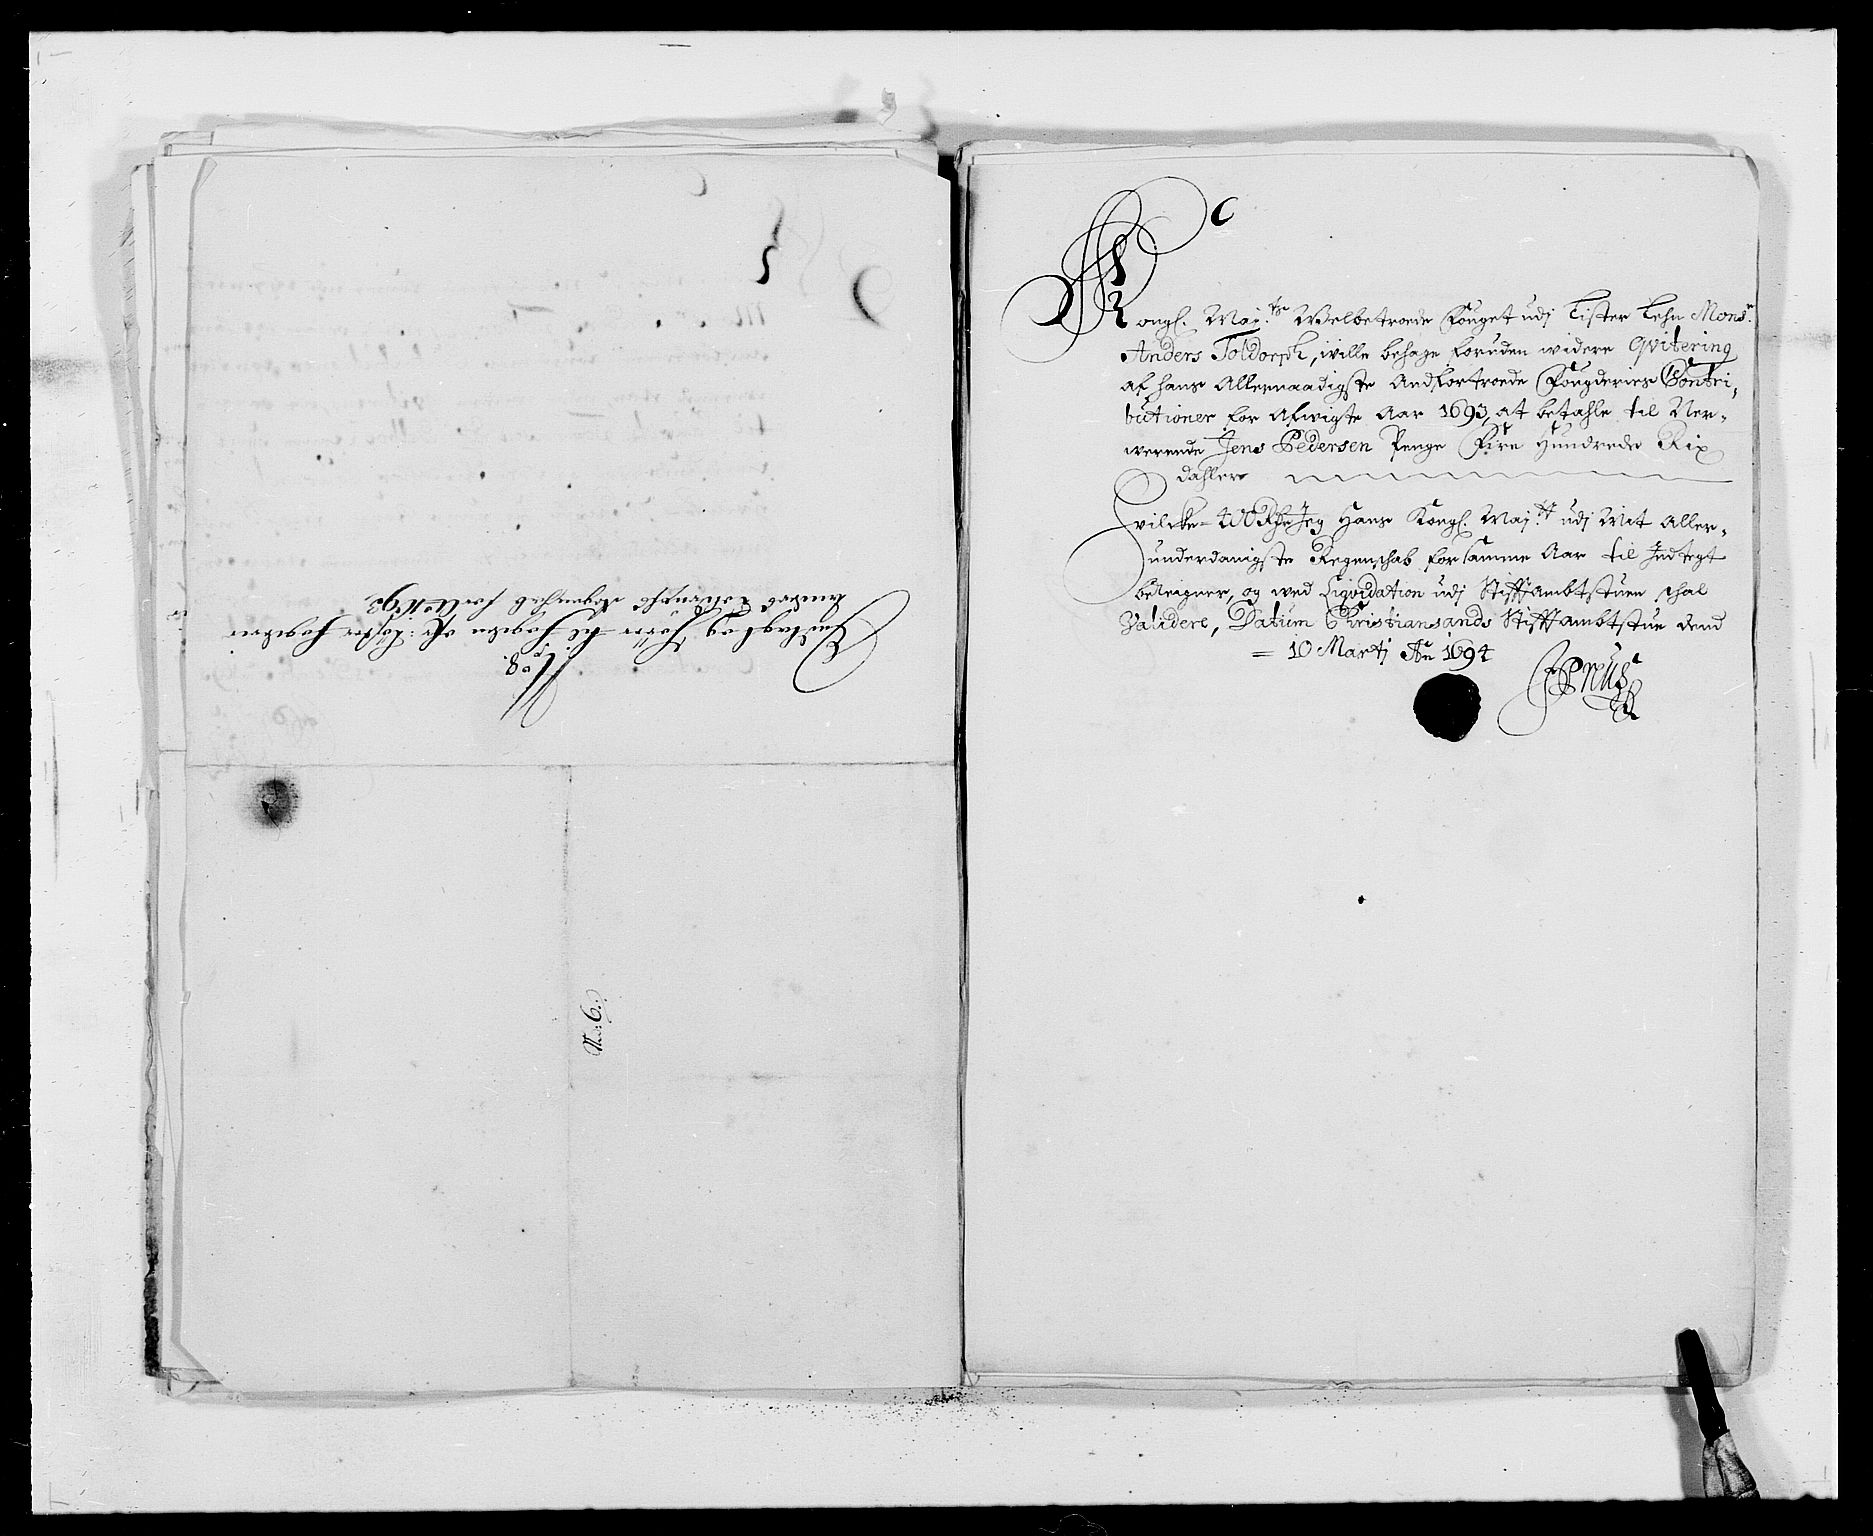 C
Kongl. May.ts Welbetroede Fouget udj Lister Lehn Monsr.
Anders Toldorph, wille behage foruden widere Qvitering
af hans Allernaadigste Andfortroede Fougderies Contri-
butioner for Afwigte Aar 1693, at betahle til Ner-
werende Jens Pedersen Penge Fire Hundrede Rix
dahler
Hvilcke 400 Rdr Jeg Hans Kongl. May.tt udj Mit Aller-
underdanigste Regenschab for samme Aar til Indtegt
beleigner, og wed Liqvidation udj Stifftambtstuen schal
Validere, Datum Christiansands Stifftambtstue dend
= 10 Martj Ao 1694
No 8.
Regenschab for Ao 1693.
No: 6.